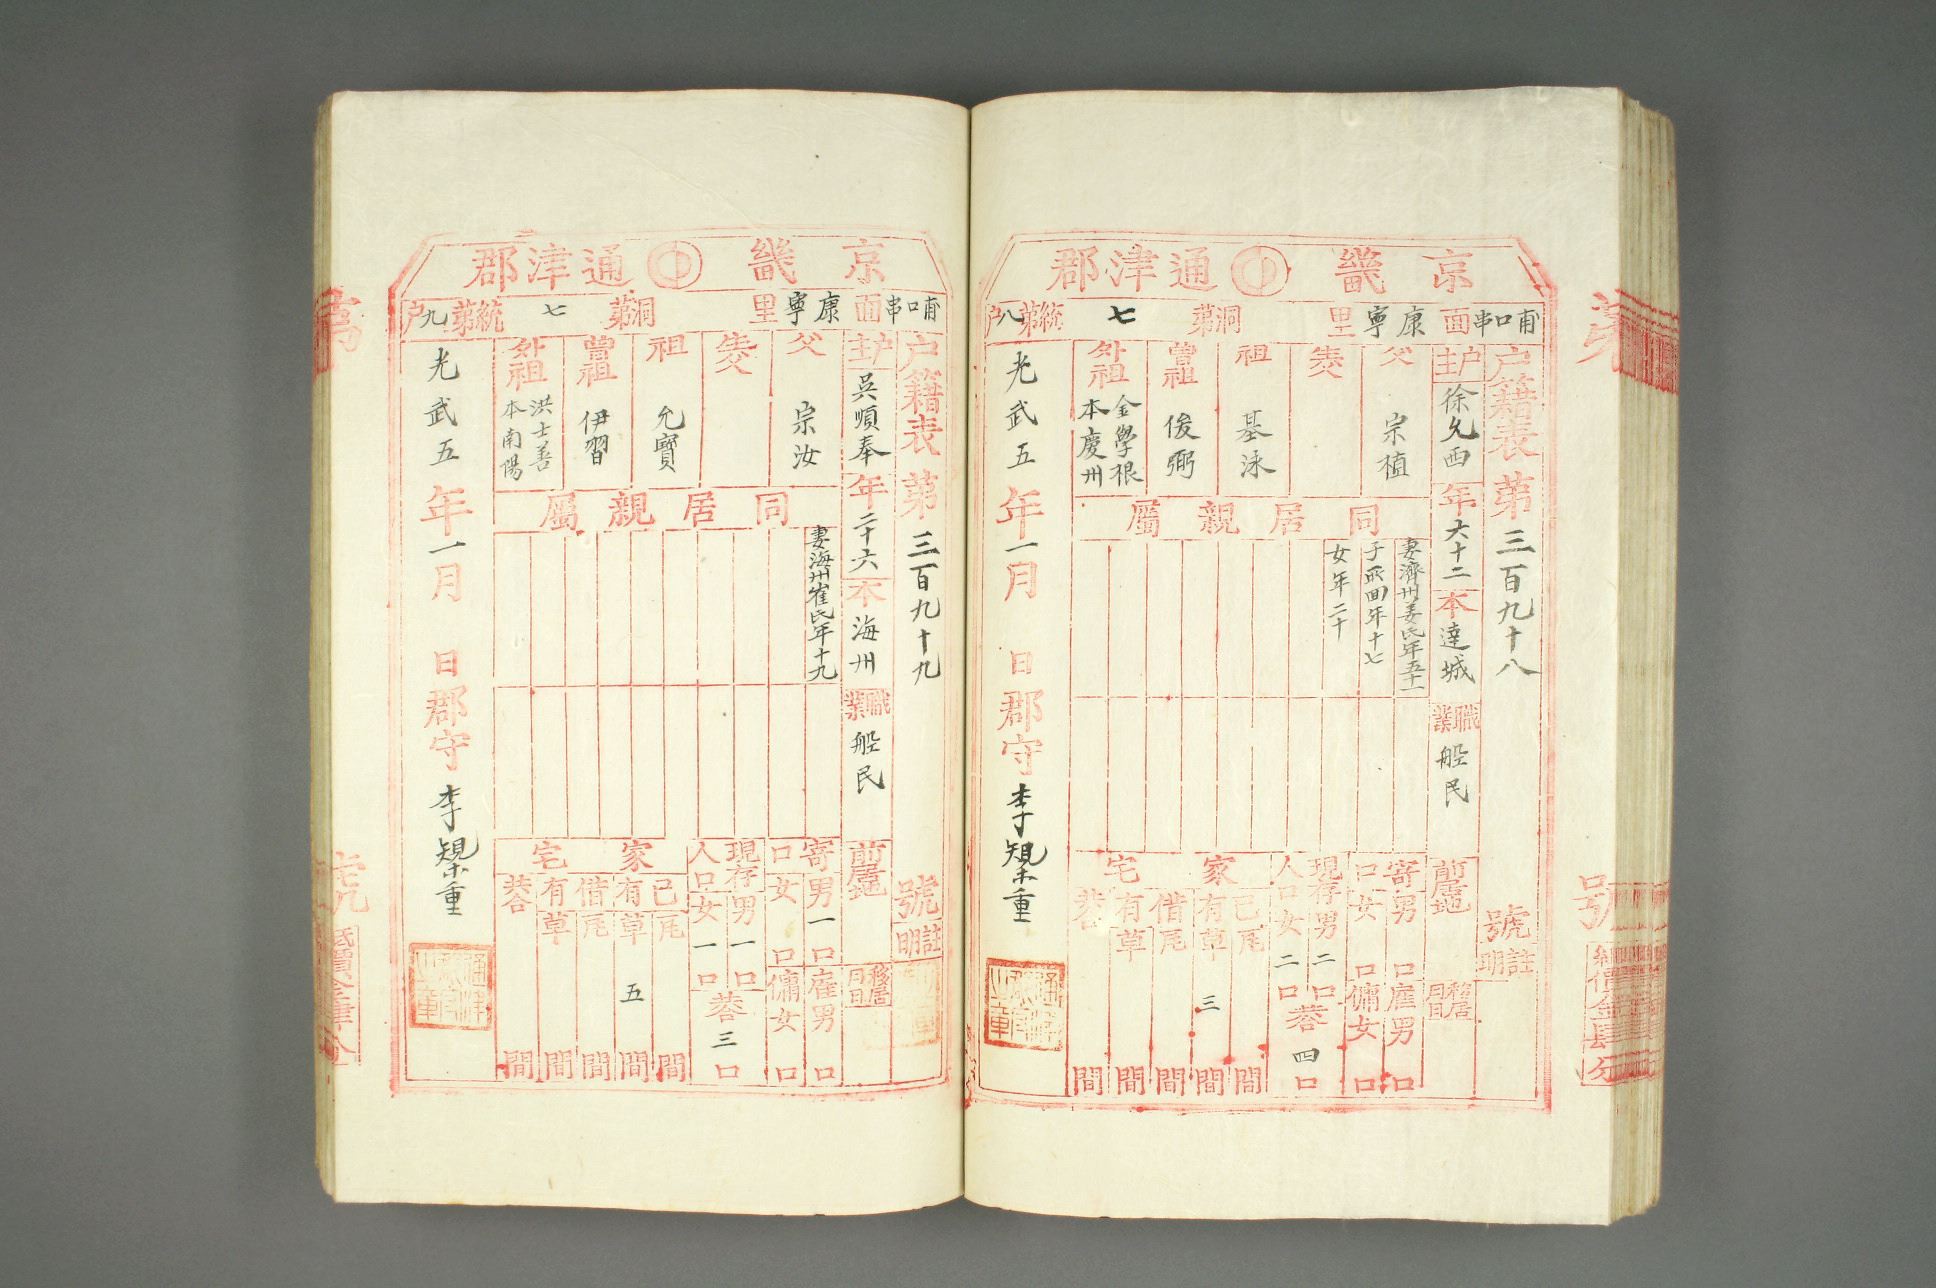 京畿 通津郡
甫口串面康寧里 洞第 七 統第八戶
戶籍表第三百九十八號
註明
戶主 徐允西 年六十二 本達城 職業 船民
前居地
移居 月 日
父 宗植
生父
祖 基泳
曾祖 俊弼
外祖 金學根
本慶州
同居親屬
妻濟州姜氏年五十一
女年二十
寄口 男 口 女 口
雇男 口 傭女 口
現存人口 男二口 女二口 共四口
家宅
己有 瓦 間 草 三 間
借有 瓦 間 草 間
共 間
光武五年一月 日郡守李㮨重
京畿 通津郡
甫口串面康寧里 洞第 七 統第九戶
戶籍表第三百九十九號
註明
戶主 吳順奉 年二十六 本海州 職業 船民
前居地
移居 月 日
父 宗汝
生父
祖 允寶
曾祖 伊習
外祖 洪士善
本南陽
同居親屬
妻海州崔氏年十九
寄口 男一口 女 口
雇男 口 傭女 口
現存人口 男一口 女一口 共三口
家宅
己有 瓦 間 草 五 間
借有 瓦 間 草 間
共 間
光武五年一月 日郡守李㮨重